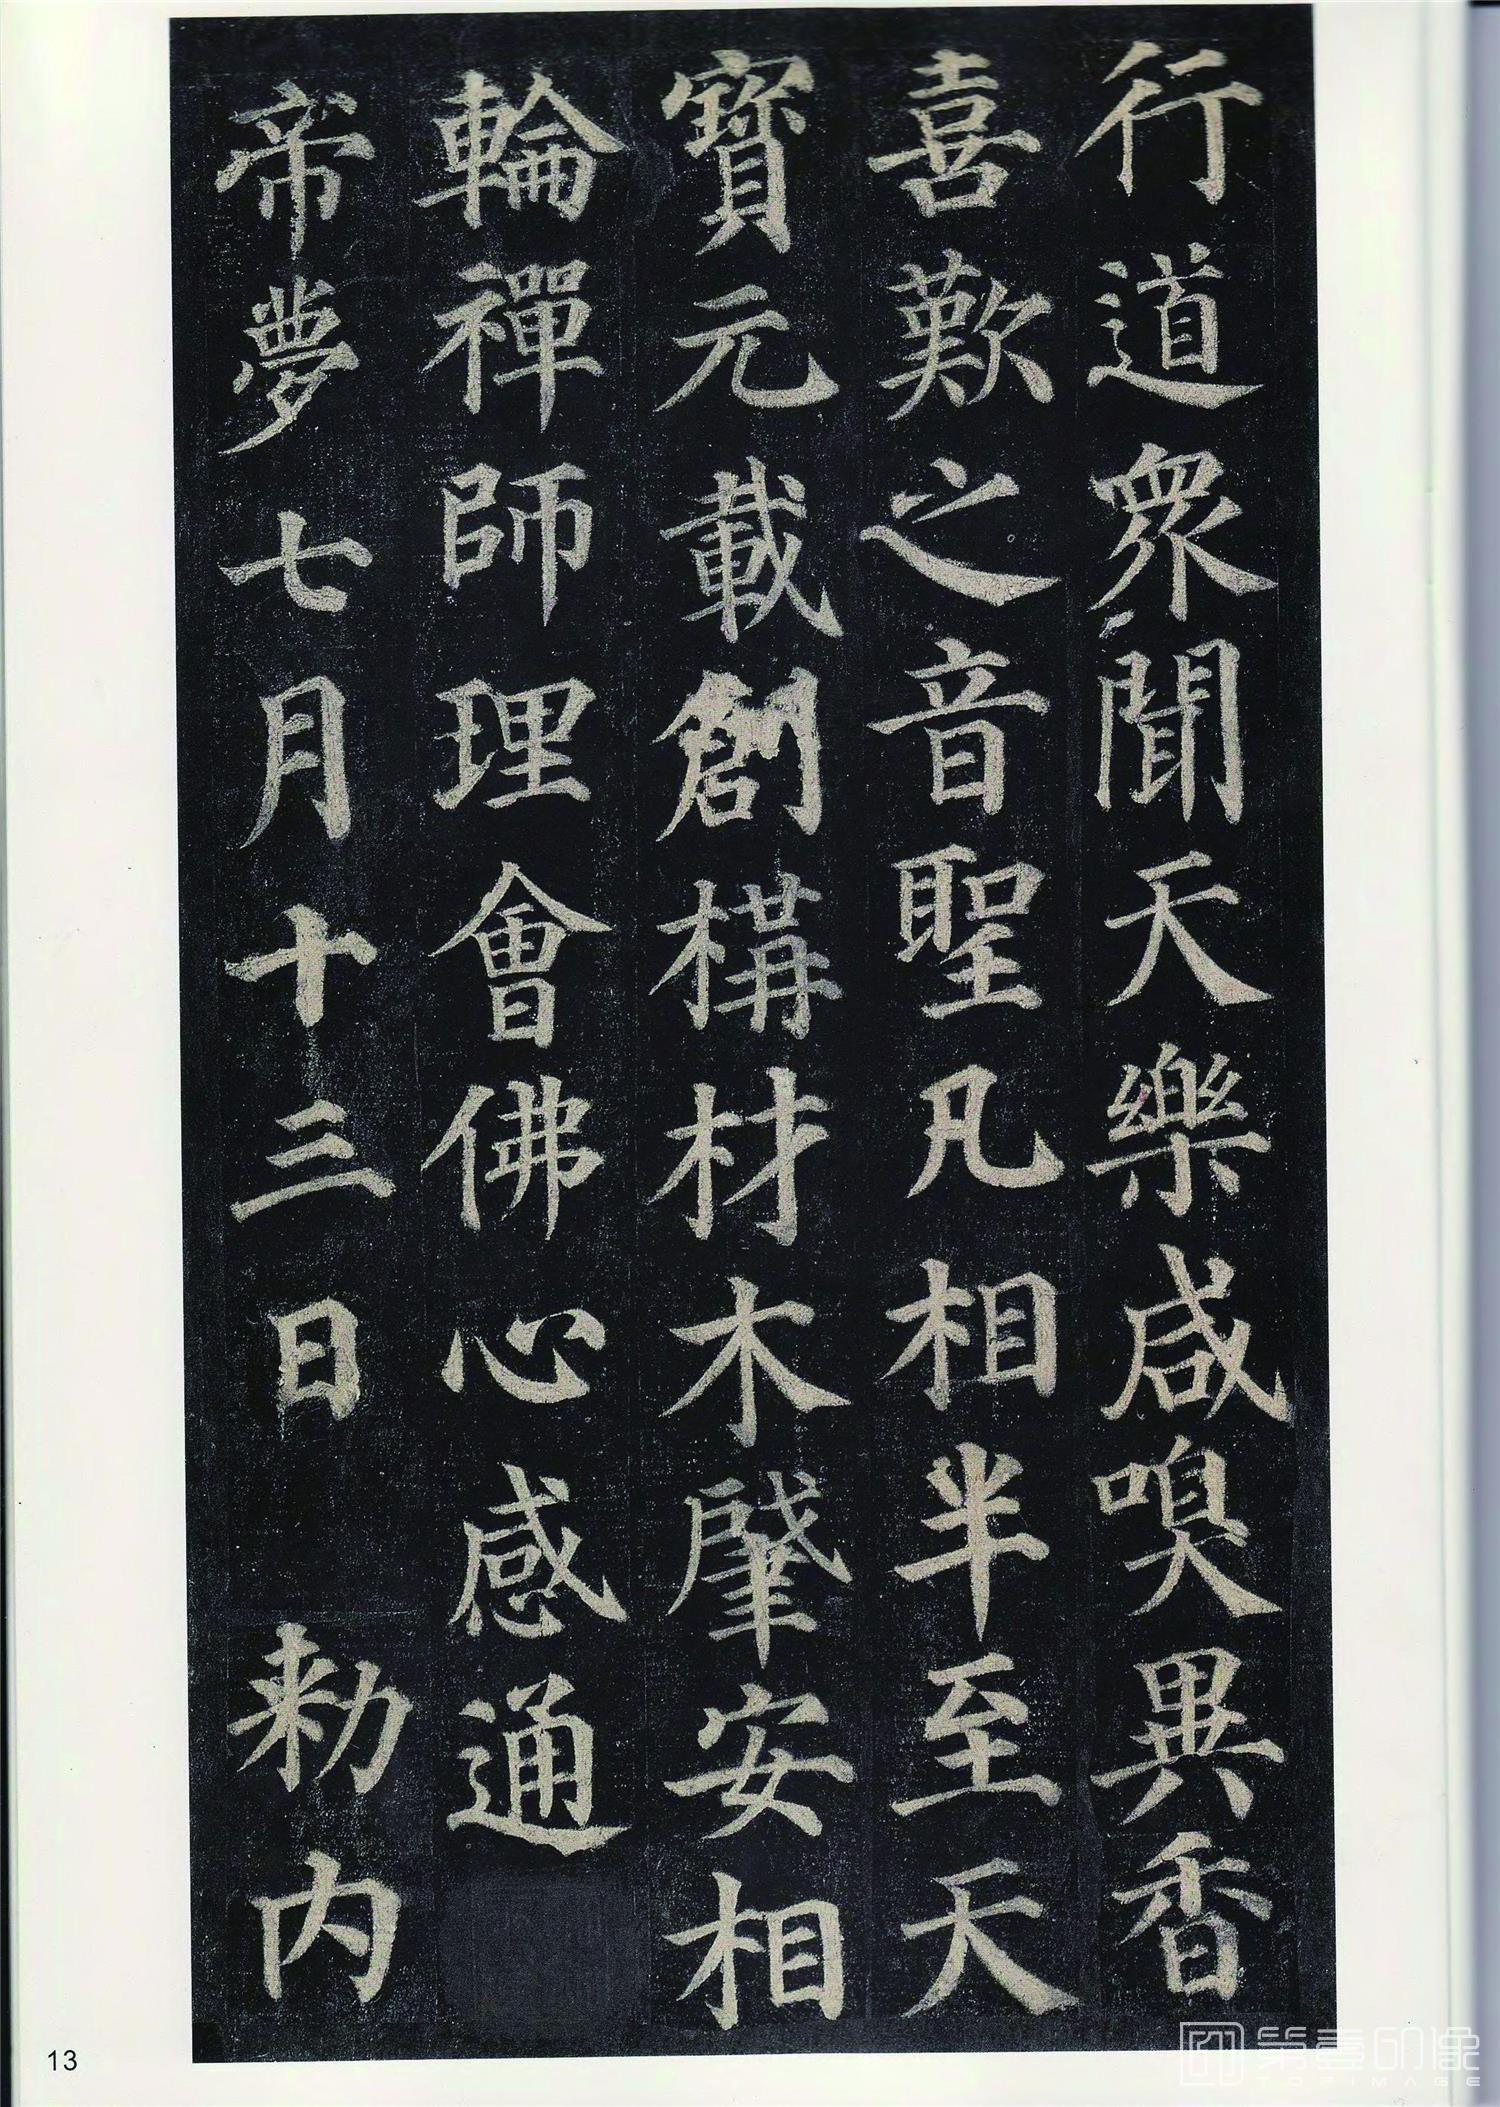 行道衆聞天樂咸嗅異香
喜歎之音聖凡相半至天
寶元載創構材木肇安相
輪禪師理會佛心感通
帝夢七月十三日 勅内
13
第壹印像
TOPIMAGE